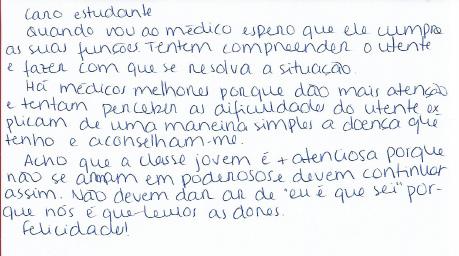 Caro estudante
Quando vou ao médico espero que ele cumpra
as suas funções. Tentem compreender o utente
e fazer com que se resolva a situação.
Há médicos melhores porque dão mais atenção
e tentam perceber as dificuldades do utente ex
plicam de uma maneira simples a doença que
tenho e aconselham-me.
Acho que a classe jovem é + atenciosa porque
não se armam em poderosos e devem continuar
assim. Não devem dar ar de "eu é que sei" por-
que nós é que temos as dores.
Felicidade!